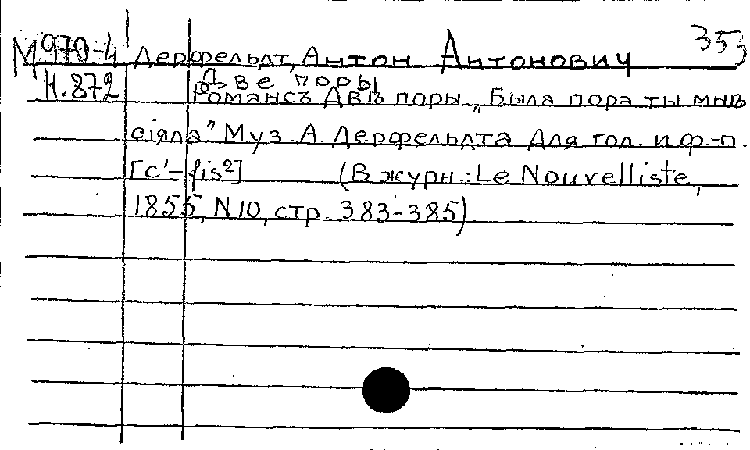 М970-4 Дерфельдт, Антон Антонович 353
Н.872 Две поры
Романсъ Двѣ поры „Была пора ты мнѣ
сіяла" Муз. А. Дерфельдта Для гол. и ф-п.
[c'-fis²] (В журн.: Le Nouvelliste,
1855, N10, стр. 383-385)